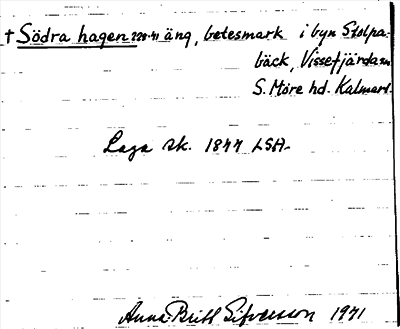 † Södra hagen 220-41 äng, betesmark i byn Stolpa-
bäck, Vissefjärda sn
S. Möre hd. Kalmar l.
Laga sk. 1844 LSA
Anna-Britt Sifversson 1971